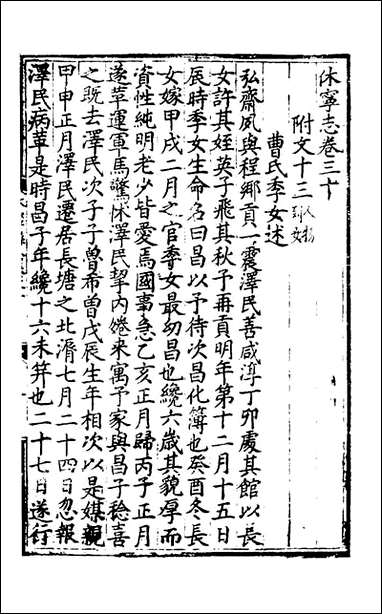 休寧志卷三十
附文十三 列女
曹氏季女述
弘齋夙與程鄉貢一震澤民善咸淳丁卯處其館以長
女許其姪英子飛其秋予再貢明年第十二月十五日
辰時季女生命名曰昌以予待次昌化簿也癸酉冬長
女嫁甲戌二月之官季女最幼昌也纔六歲其貌厚而
資性純明老少皆愛焉國事急乙亥正月歸丙子正月
遂革運軍馬驚怵澤民挈内婘來寓予家與昌子稔喜
之既去澤民次子子曾希曾戊辰生年相次以是媒覯
甲申正月澤民遷居長塘之北湑七月二十四日忽報
澤民病革是時昌子年纔十六未筓也二十七日遂行